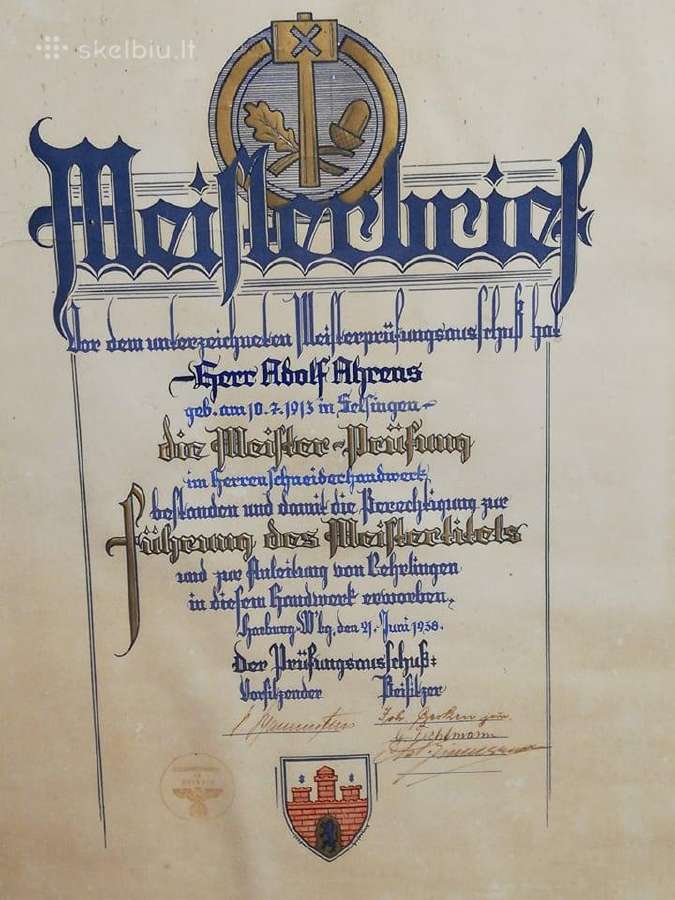 skelbiu.lt
Meisterbrief
Vor dem unterzeichneten Meisterprüfungsausschuß hat
Herr Adolf Ahrens
geb. am 10.7.1913 in Selsingen
die Meister-Prüfung
im Herrenschneiderhandwerk
bestanden und damit die Berechtigung zur
Führung des Meistertitels
und zur Anleitung von Lehrlingen
in diesem Handwerk erworben.
Harburg-W'bg, den 21. Juni 1938.
der Prüfungsausschuß:
Vorsitzender Beisitzer